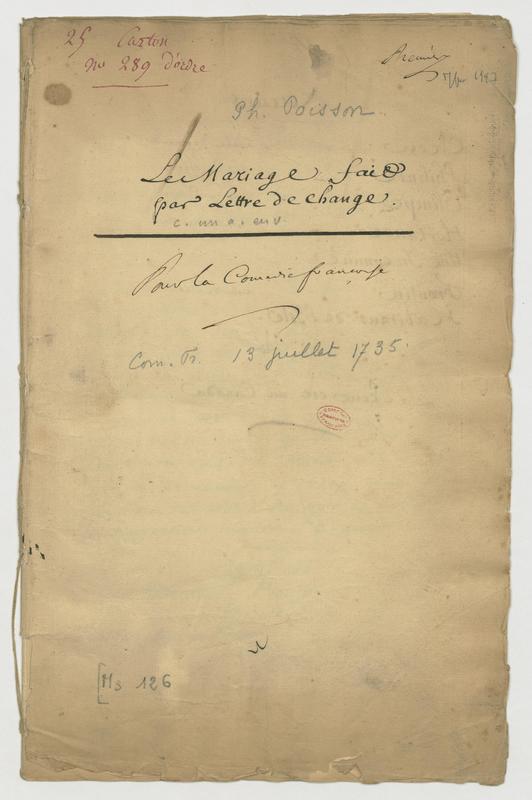 25 Carton
no 289 d'ordre
Ph. Poisson
Le Mariage fait
par Lettre de change.
c. un a. en v.
Pour la Comedie françoise
Com. Fr. 13 juillet 1735.
[Ms 126